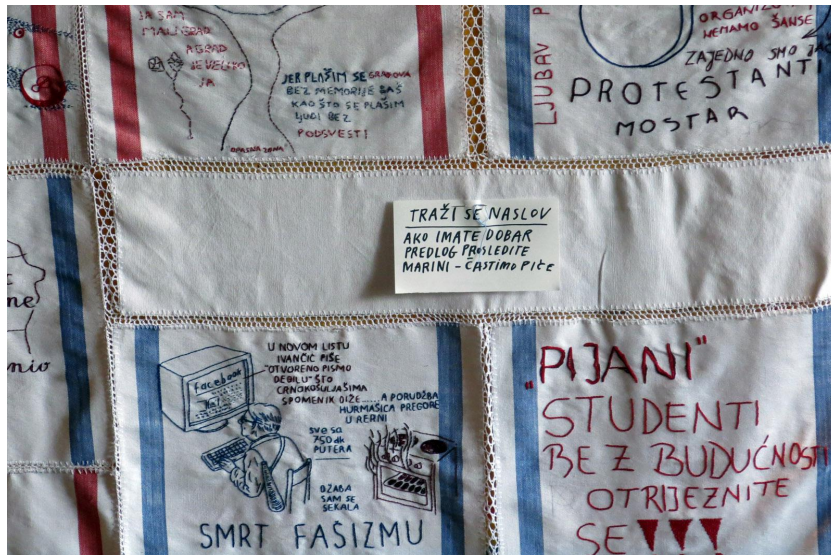 JA SAM
MALI GRAD
A GRAD
JE VELIKO
JA
JER PLAŠIM SE GRADOVA
BEZ MEMORIJE BAŠ
KAO ŠTO SE PLAŠIM
LJUDI BEZ
PODSVESTI
OPASNA ZONA
LJUBAV
NEMAMO ŠANSE
ZAJEDNO SMO
PROTESTANTI
MOSTAR
TRAŽI SE NASLOV
AKO IMATE DOBAR
PREDLOG PROSLEDITE
MARINI - ČASTIMO PIĆE
U NOVOM LISTU
IVANČIĆ PIŠE
"OTVORENO PISMO
DEBILU" ŠTO
CRNOKOŠULJAŠIMA
SPOMENIK DIŽE.....A PORUDŽBA
HURMAŠICA PREGORE
U RERNI
facebook
SVE SA
750 dk
PUTERA
DŽABA
SAM SE
SEKALA
SMRT FAŠIZMU
„PIJANI"
STUDENTI
BEZ BUDUĆNOSTI
OTRIJEZNITE
SE!!!